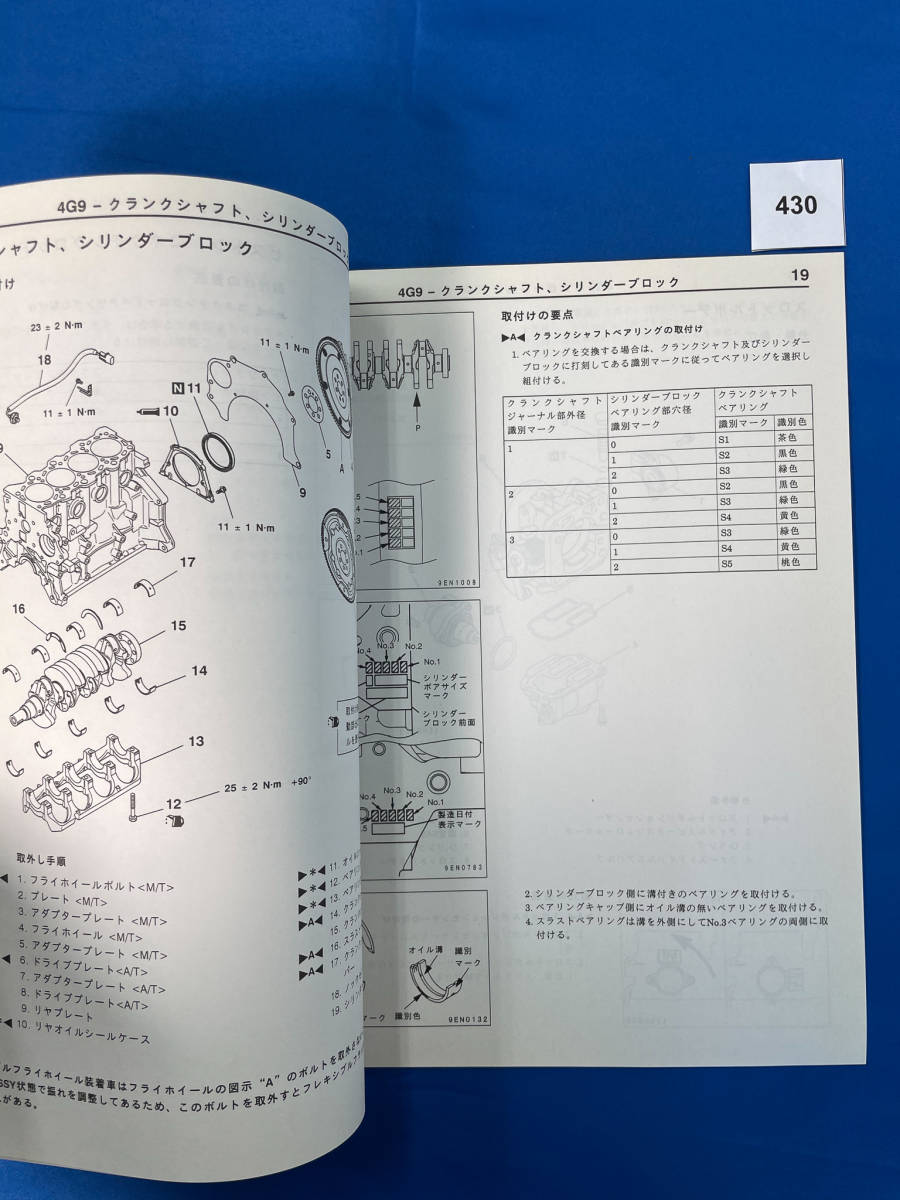 430
4G9 – クランクシャフト、シリンダーブロック
シャフト、シリンダーブロック
付け
23 ± 2 N·m
18
11 ± 1 N·m
11 ± 1 N·m
N 11
10
5
A
4
9
11 ± 1 N·m
17
16
15
14
13
25 ± 2 N·m +90°
12
取外し手順
1. フライホイールボルト<M/T>
2. プレート <M/T>
3. アダプタープレート <M/T>
4. フライホイール <M/T>
5. アダプタープレート <M/T>
6. ドライブプレート<A/T>
7. アダプタープレート <A/T>
8. ドライブプレート<A/T>
9. リヤプレート
10. リヤオイルシールケース
▶*◀ 11. オイル
▶*◀ 12. ベアリ
▶*◀ 13. ベアリ
▶A◀ 14. クラン
15. クラン
▶A◀ 16. スラス
▶A◀ 17. クラン
バー
18. ノック
19. シリン
ルフライホイール装着車はフライホイールの図示 “A” のボルトを取外さ
SSY状態で振れを調整してあるため、このボルトを取外すとフレキシブルフラ
がある。
4G9 – クランクシャフト、シリンダーブロック
19
P
9EN1008
No.4
No.3
No.2
No.1
シリンダー
ボアサイズ
マーク
シリンダー
ブロック前面
No.4
No.3
No.2
No.1
製造日付
表示マーク
9EN0783
オイル溝
識別
マーク
識別色
9EN0132
取付けの要点
▶A◀ クランクシャフトベアリングの取付け
1. ベアリングを交換する場合は、クランクシャフト及びシリンダー
ブロックに打刻してある識別マークに従ってベアリングを選択し
組付ける。
クランクシャフト シリンダーブロック クランクシャフト
ジャーナル部外径 ベアリング部穴径 ベアリング
識別マーク 識別マーク 識別マーク 識別色
1 0 S1 茶色
1 S2 黒色
2 S3 緑色
2 0 S2 黒色
1 S3 緑色
2 S4 黄色
3 0 S3 緑色
1 S4 黄色
2 S5 桃色
2. シリンダーブロック側に溝付きのベアリングを取付ける。
3. ベアリングキャップ側にオイル溝の無いベアリングを取付ける。
4. スラストベアリングは溝を外側にしてNo.3ベアリングの両側に取
付ける。